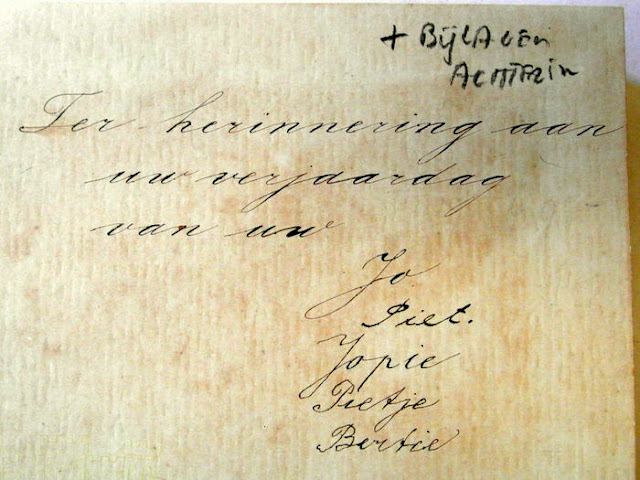 + BIJLAGEN
ACHTERIN
Ter herinnering aan
uw verjaardag
van uw
Jo
Piet.
Jopie
Pietje
Bertie